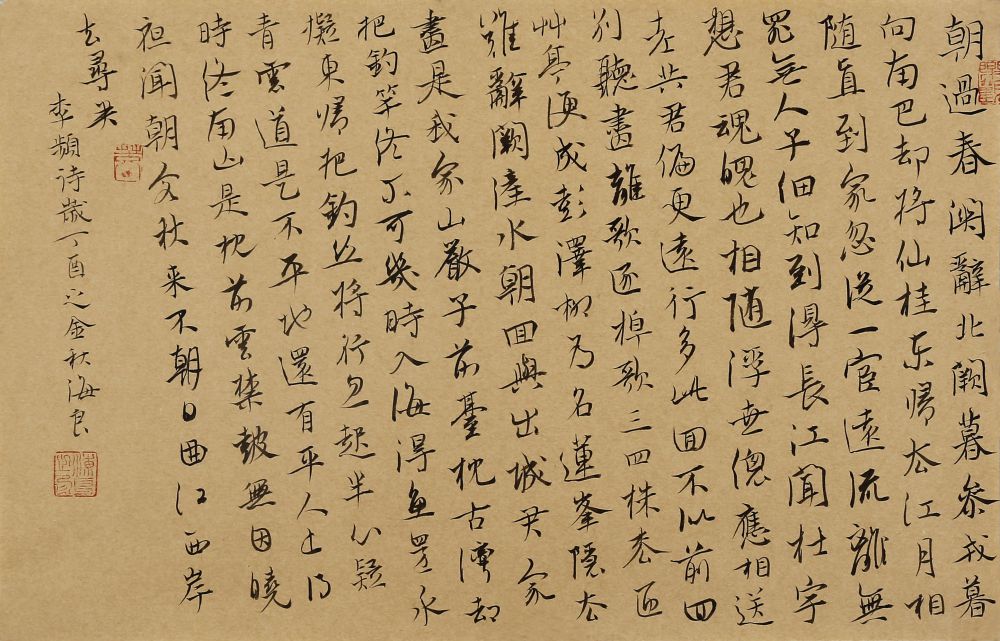 朝過春関辭北闕暮參戎暮
向南巴却將仙桂东歸去江月相
随直到家忽從一宦遠流離無
罪無人子細知到得長江聞杜宇
想君魂魄也相随浮世總應相送
老共君偏更遠行多此回不似前回
别聽盡離歌逐棹歌三四株松匝
艸亭便成彭澤柳為名蓮峯隱去
難辭闕滻水朝回與出城君家
盡是我家山嚴子前臺枕古灣却
把釣竿終不可幾時入海得魚還永
擬東歸把釣丝將行忽起半心疑
青雲道是不平地還有平人上得
時終南山是枕前雲禁鼓無因曉
夜聞朝客秋来不朝日曲江西岸
去尋君
李頻诗歲丁酉之金秋海良